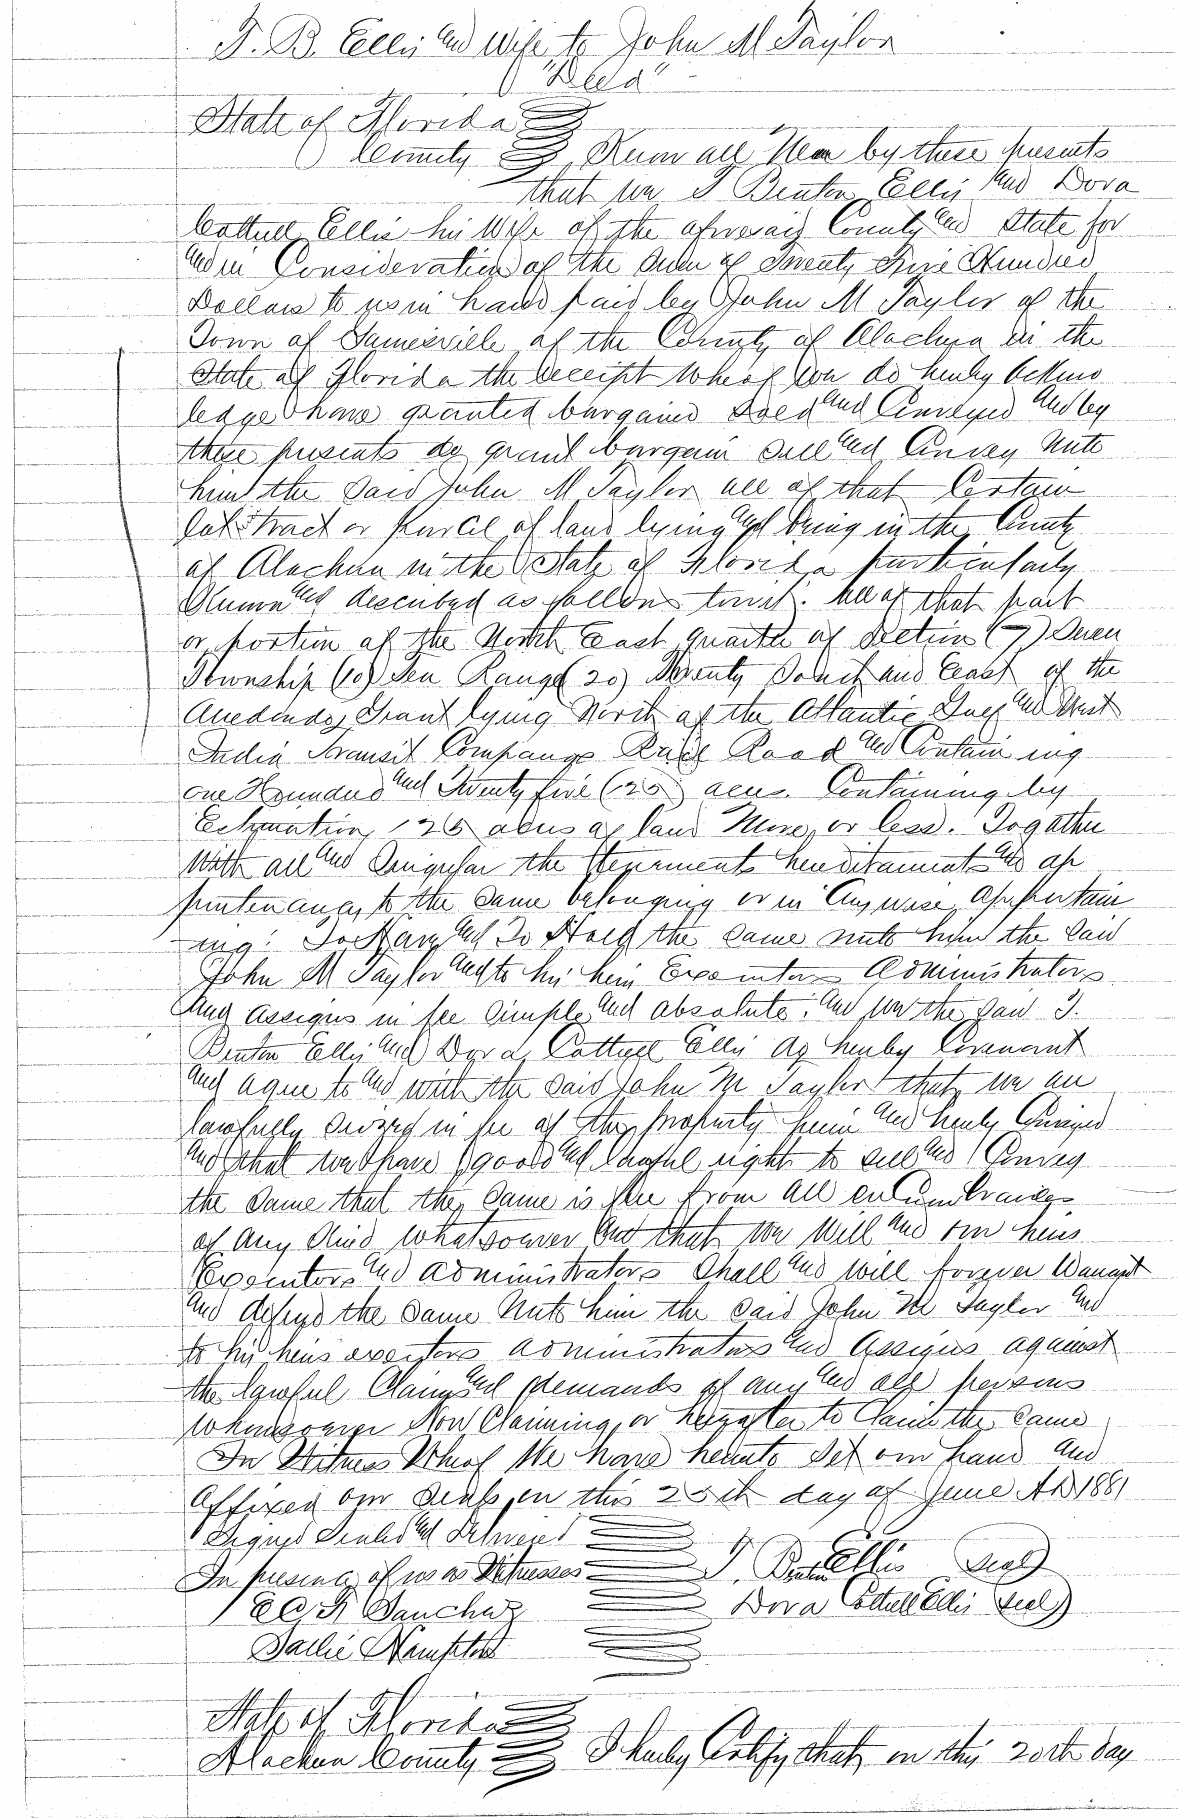 T. B. Ellis and Wife to John M Taylor
"Deed"
State of Florida
County Know all Men by these presents
that we T Benton Ellis and Dora
Cottrell Ellis his Wife of the aforesaid County and State for
and in Consideration of the Sum of Twenty Five Hundred
Dollars to us in hand paid by John M Taylor of the
Town of Gainesville of the County of Alachua in the
State of Florida the receipt wheof we do herby Acknow
ledge have granted bargained Sold and Conveyed and by
these presents do grant bargain Sell and Convey unto
him the Said John M Taylor all of that Certain
lot Tract or parcel of land lying and being in the County
of Alachua in the State of Florida particularly
Known and described as follows towit. All of that part
or portion of the North East quarter of Section (7) Seven
Township (10) Ten Range (20) Twenty South and East of the
Arredondo Grant lying North of the Atlantic Gulf and West
India Transit Companys Rail Road and Contain ing
one Hundred and Twenty five (125) acres. Containing by
Estimation 125 acres of land More or less. Togather
With all and Singular the tenements hereditaments and ap
purtenances to the Same belonging or in Anywise appertain
ing. To Have and To Hold the Same unto him the Said
John M Taylor and to his heirs Executors Administrators
and assigns in fee Simple and absolute. And we the Said T.
Benton Ellis and Dora Cottrell Ellis do herby Covenant
and agree to and with the Said John M Taylor that we are
lawfully Seized in fee of the property herein and herby Conveyed
and that we have good and lawful right to sell and Convey
the Same that the Same is free from all encumbrances
of any Kind whatsoever and that we Will and our heirs
Executors and administrators Shall and will forever Warrant
and defend the Same unto him the Said John M Taylor and
to his heirs executors administrators and Assigns against
the lawful Claims and demands of any and all persons
whomsoever Now Claiming or hereafter to Claim the Same
In Witness Wheof We have hereunto Set our hand and
affixed our Seals on this 20th day of June AD 1881
Signed Sealed and Delivered
In presence of us as Witnesses T. Benton Ellis (Seal)
E C F Sanchez Dora Cottrell Ellis (Seal)
Sallie Hampton
State of Florida
Alachua County I herby Certify that on this 20th day